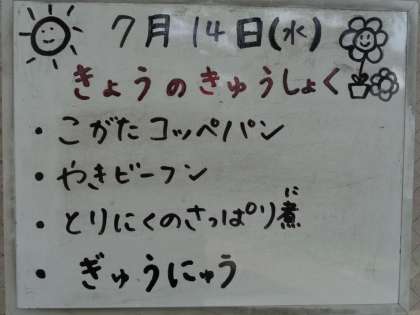 7月14日(水)
きょうのきゅうしょく
・こがたコッペパン
・やきビーフン
・とりにくのさっぱり煮
に
・ぎゅうにゅう